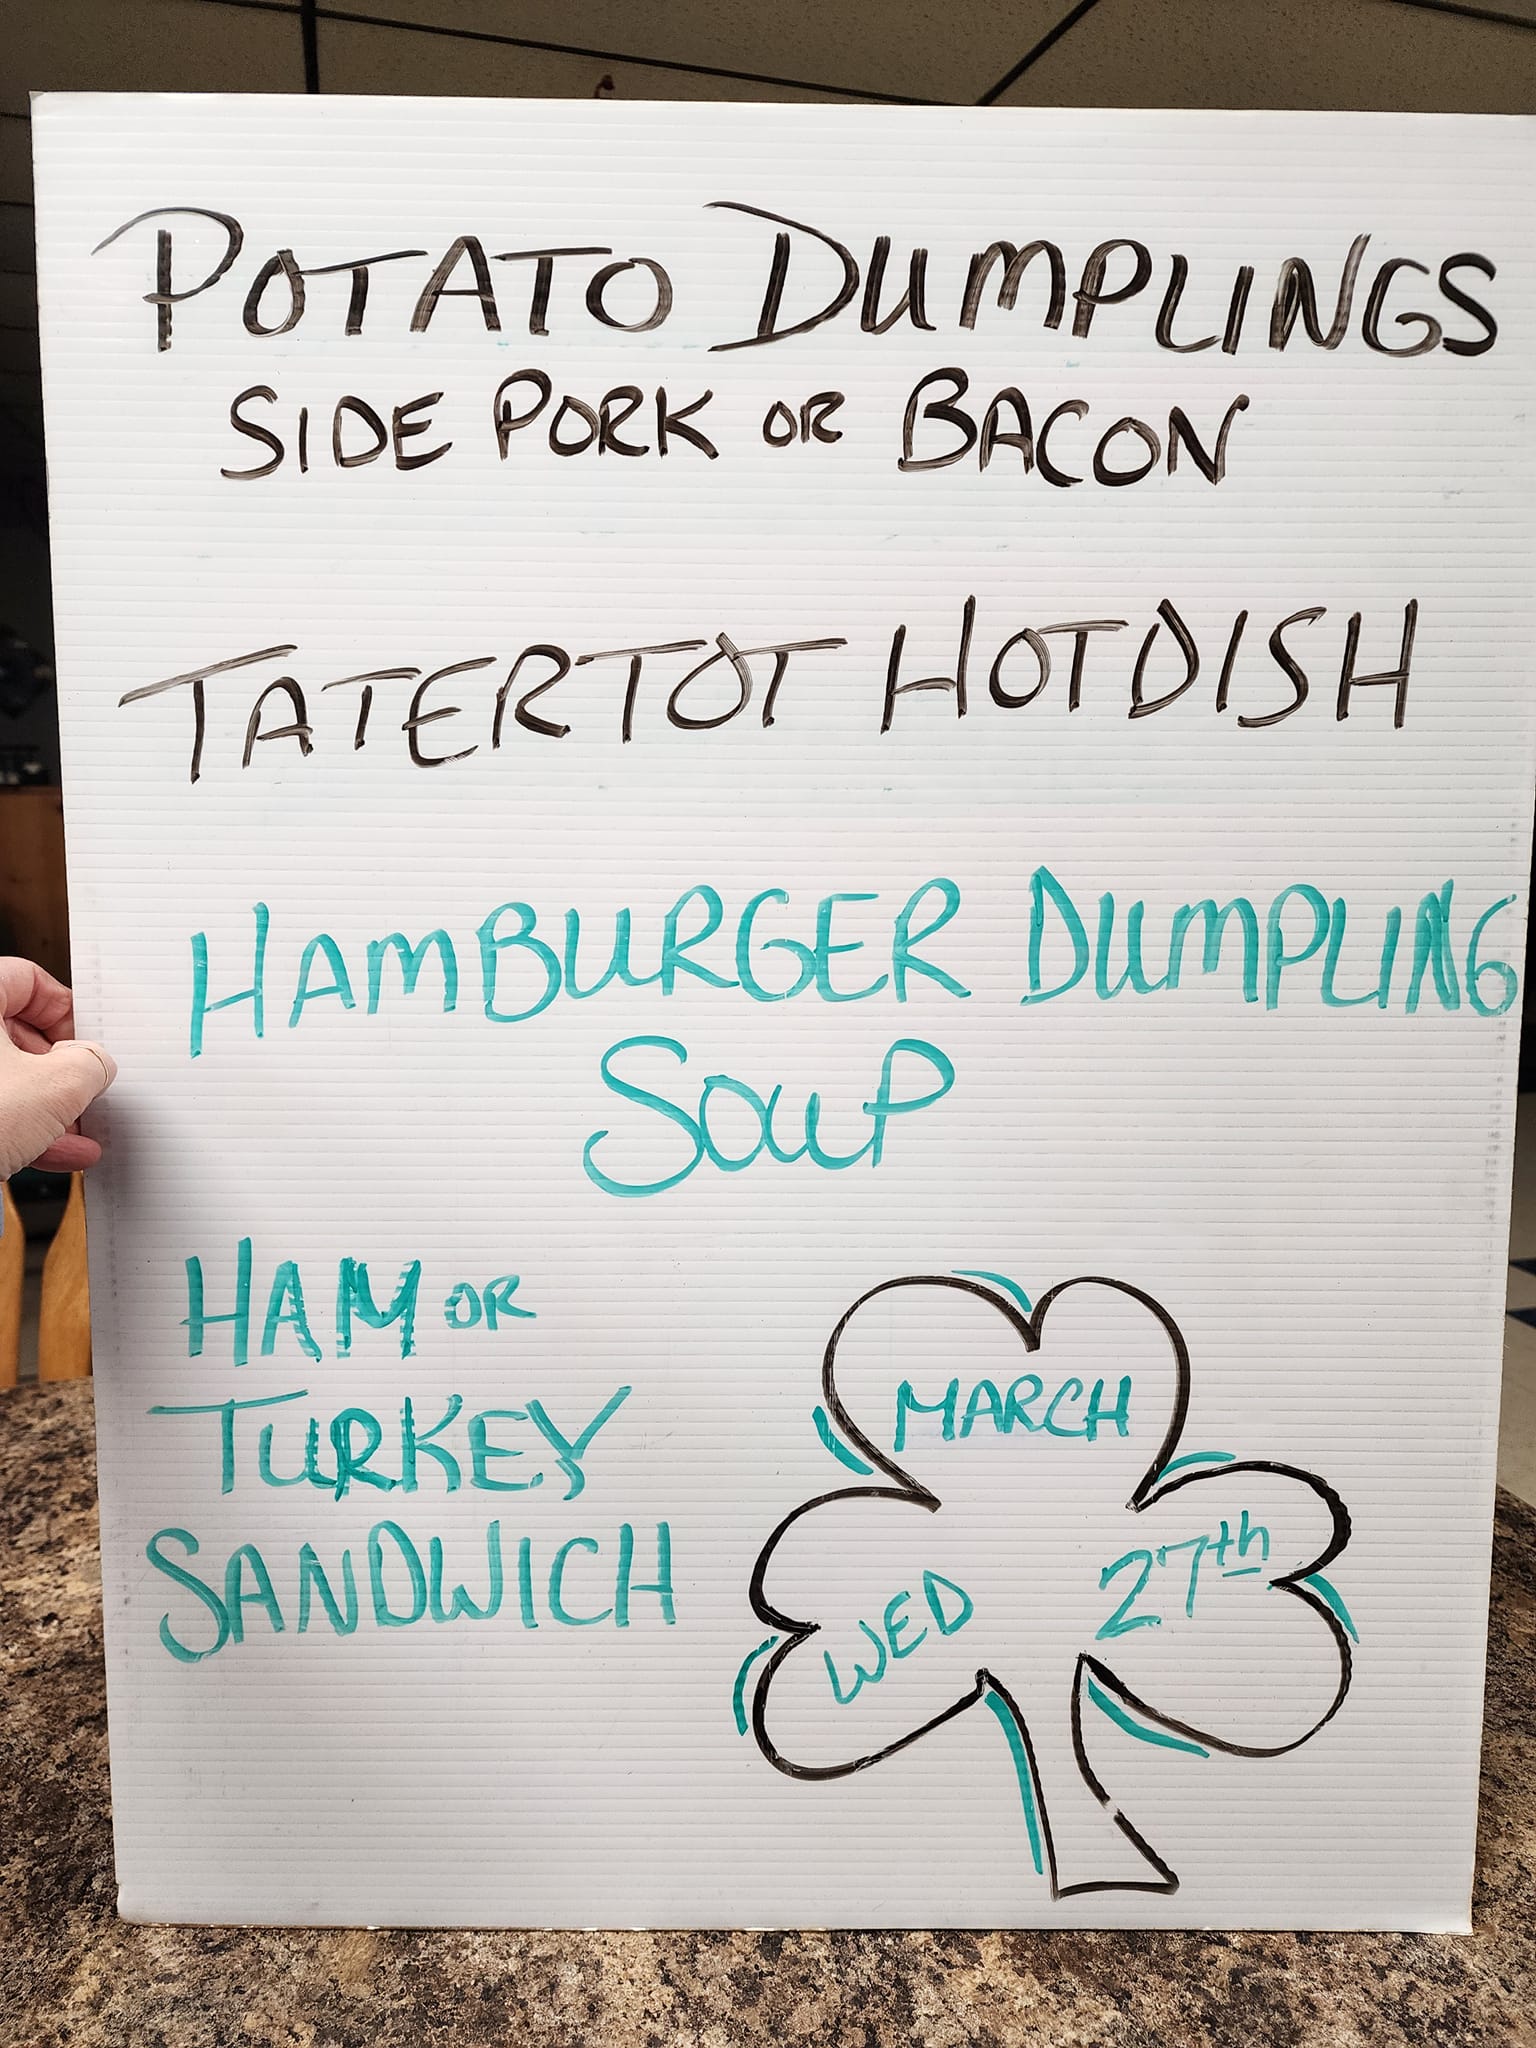 POTATO DUMPLINGS
SIDE PORK OR BACON
TATERTOT HOTDISH
HAMBURGER DUMPLING
SOUP
HAM OR
TURKEY
SANDWICH
MARCH
WED 27th